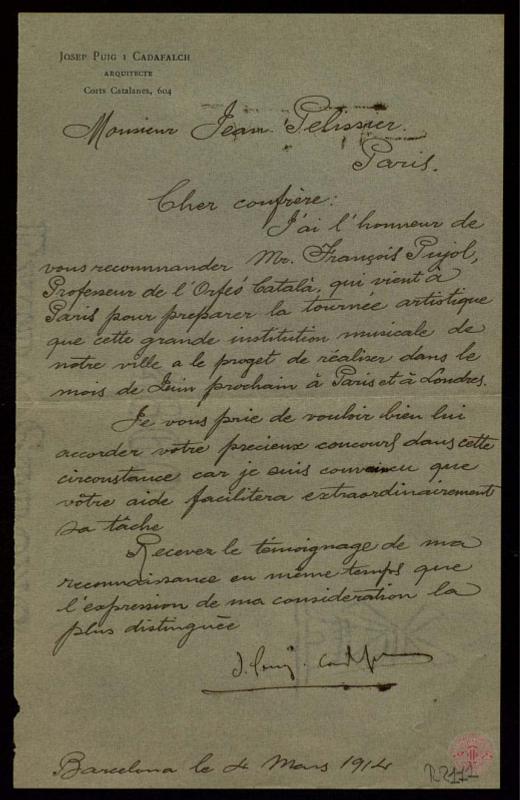 JOSEP PUIG I CADAFALCH
ARQUITECTE
Corts Catalanes, 604
Monsieur Jean Pelissier.
Paris.
Cher confrère:
J'ai l'honneur de
vous recommander Mr. François Pujol,
Professeur de l'Orfeó Català, qui vient à
Paris pour preparer la tournée artistique
que cette grande institution musicale de
notre ville a le proget de réaliser dans le
mois de Juin prochain à Paris et à Londres.
Je vous prie de vouloir bien lui
accorder votre precieux concours dans cette
circonstance car je suis convaincu que
vôtre aide facilitera extraordinairement
sa tâche
Recevez le témoignage de ma
reconnaissance en même temps que
l'expression de ma consideration la
plus distinguée
J. Puig. Cadafalch
Barcelona le 4 Mars 1914
R2111